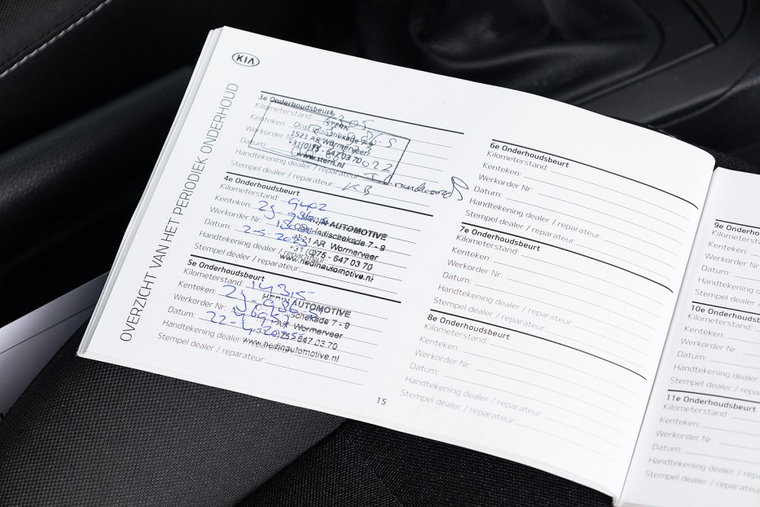 KIA
OVERZICHT VAN HET PERIODIEK ONDERHOUD
3e Onderhoudsbeurt
Kilometerstand:
Kenteken: STERN
Werkorder
1521 AR Wormerveer
Datum: 075 - 647 03 70
www.stern.nl
Handtekening dealer / reparateur:
Stempel dealer / reparateur: KB
4e Onderhoudsbeurt
Kilometerstand:
Kenteken: AUTOMOTIVE
Werkorder Nr: 7 - 9
Datum: 1521 AR Wormerveer
(0)75 - 647 03 70
Handtekening dealer / reparateur: www.hedinautomotive.nl
Stempel dealer / reparateur:
5e Onderhoudsbeurt
Kilometerstand:
Kenteken: HEDIN AUTOMOTIVE
Werkorder Nr: 7 - 9
Datum: 22-4-2025 Wormerveer
647 03 70
Handtekening dealer / reparateur: www.hedinautomotive.nl
Stempel dealer / reparateur:
15
6e Onderhoudsbeurt
Kilometerstand:
Kenteken:
Werkorder Nr:
Datum:
Handtekening dealer / reparateur:
Stempel dealer / reparateur:
7e Onderhoudsbeurt
Kilometerstand:
Kenteken:
Werkorder Nr:
Datum:
Handtekening dealer / reparateur:
Stempel dealer / reparateur:
8e Onderhoudsbeurt
Kilometerstand:
Kenteken:
Werkorder Nr:
Datum:
Handtekening dealer / reparateur:
Stempel dealer / reparateur:
9e Onderhoudsbeurt
Kilometerstand:
Kenteken:
Werkorder Nr:
Datum:
Handtekening dealer /
Stempel dealer / reparateur
10e Onderhoudsbeurt
Kilometerstand:
Kenteken:
Werkorder Nr:
Datum:
Handtekening dealer / reparateur
Stempel dealer / reparateur
11e Onderhoudsbeurt
Kilometerstand:
Kenteken:
Werkorder Nr:
Datum:
Handtekening dealer / reparateur
Stempel dealer / reparateur